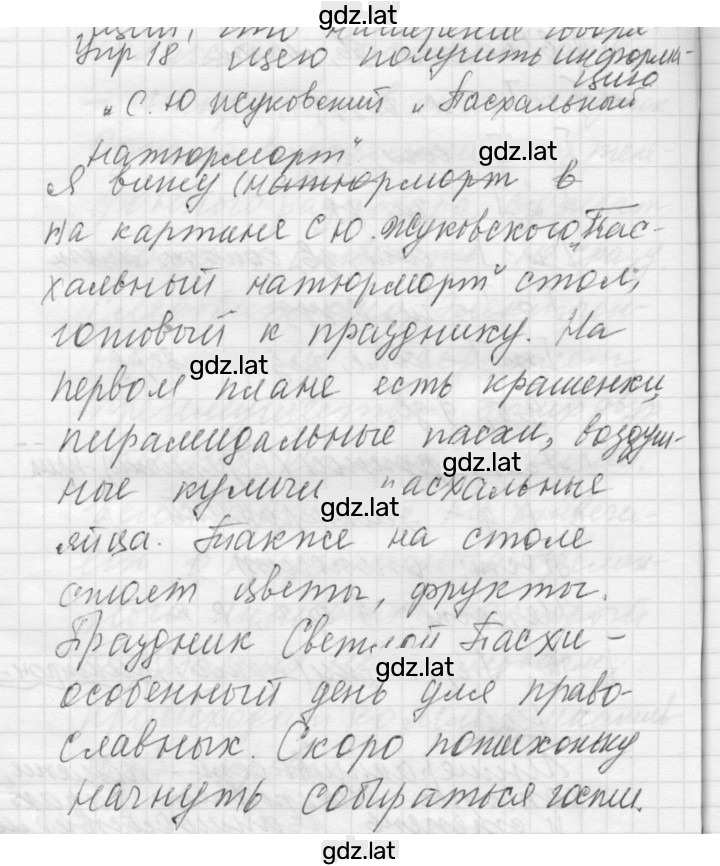 gdz.lat
ции, это намерение говоря
Упр 18 щего получить информа-
цию
„С. Ю Жуковский „Пасхальный
натюрморт“
gdz.lat
Я вижу (натюрморт в
На картине С Ю. Жуковского „Пас-
хальный натюрморт“ стол,
готовый к празднику. На
gdz.lat
первом плане есть крашенки,
пирамидальные пасхи, воздуш-
gdz.lat
ные куличи пасхальные
gdz.lat
яйца. Также на столе
стоят цветы, фрукты.
Праздник Светлой Пасхи -
gdz.lat
особенный день для право-
славных. Скоро потихоньку
начнуть собираться гости.
gdz.lat